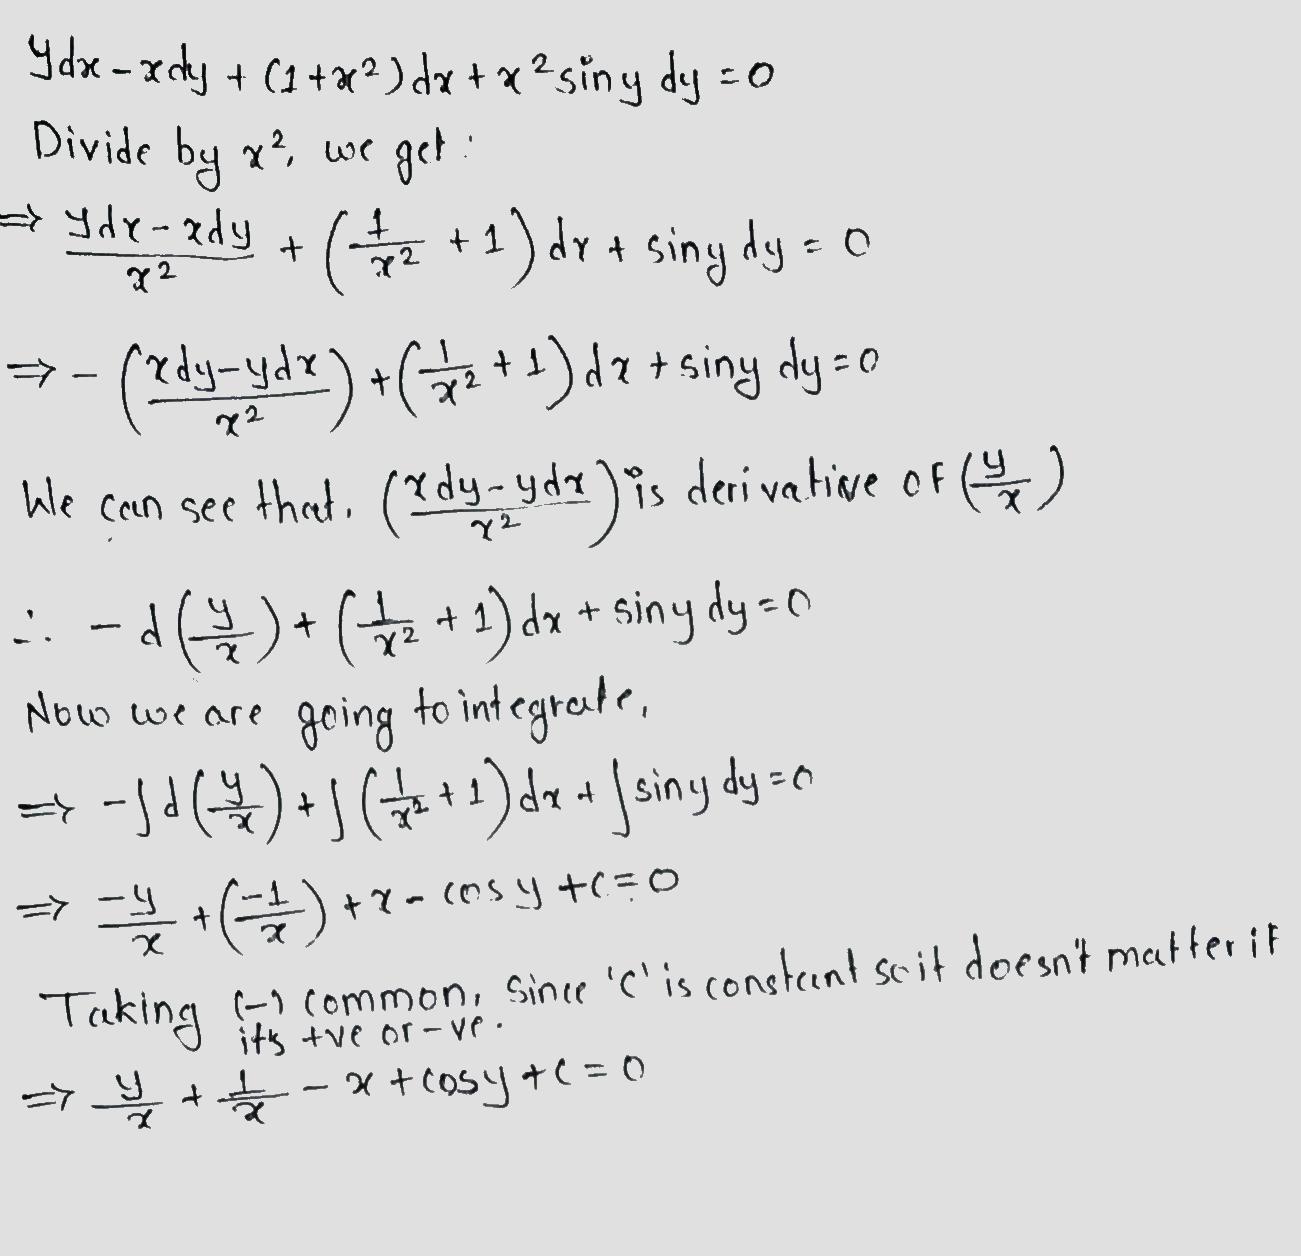 ydx - xdy + (1+x²)dx + x² siny dy = 0
Divide by x², we get :
⇒ (ydx - xdy)/x² + (1/x² + 1) dx + siny dy = 0
⇒ - ((xdy - ydx)/x²) + (1/x² + 1) dx + siny dy = 0
We can see that, ((xdy - ydx)/x²) is derivative of (y/x)
∴ - d(y/x) + (1/x² + 1) dx + siny dy = 0
Now we are going to integrate,
⇒ -∫d(y/x) + ∫(1/x² + 1) dx + ∫siny dy = 0
⇒ -y/x + (-1/x) + x - cosy + c = 0
Taking (-) common, Since 'c' is constant so it doesn't matter if
it's +ve or -ve.
⇒ y/x + 1/x - x + cosy + c = 0